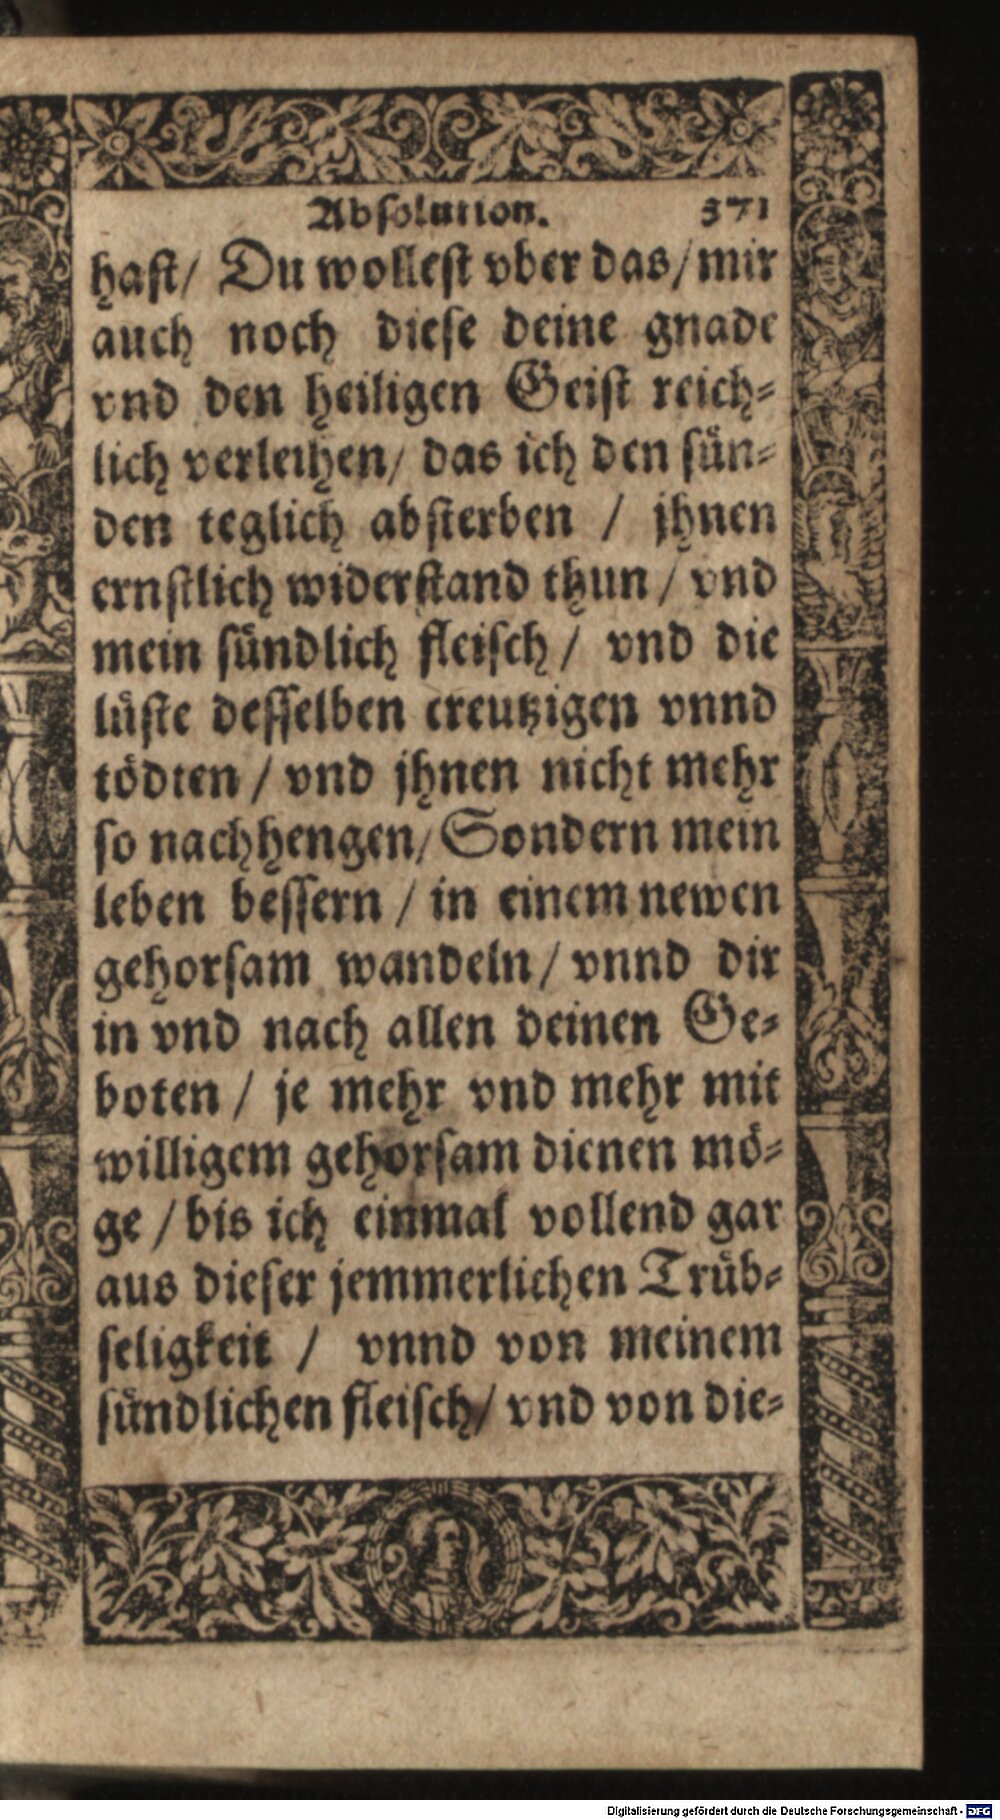 Absolution. 371
hast/ Du wollest vber das/ mir
auch noch diese deine gnade
vnd den heiligen Geist reich=
lich verleihen/ das ich den sün=
den teglich absterben / jhnen
ernstlich widerstand thun / vnd
mein sündlich fleisch / vnd die
lüste desselben creutzigen vnnd
tödten / vnd jhnen nicht mehr
so nachhengen/ Sondern mein
leben bessern / in einem newen
gehorsam wandeln / vnnd dir
in vnd nach allen deinen Ge=
boten / je mehr vnd mehr mit
willigem gehorsam dienen mö=
ge / bis ich einmal vollend gar
aus dieser jemmerlichen Trüb=
seligkeit / vnnd von meinem
sündlichen fleisch/ vnd von die=
Digitalisierung gefördert durch die Deutsche Forschungsgemeinschaft - DFG